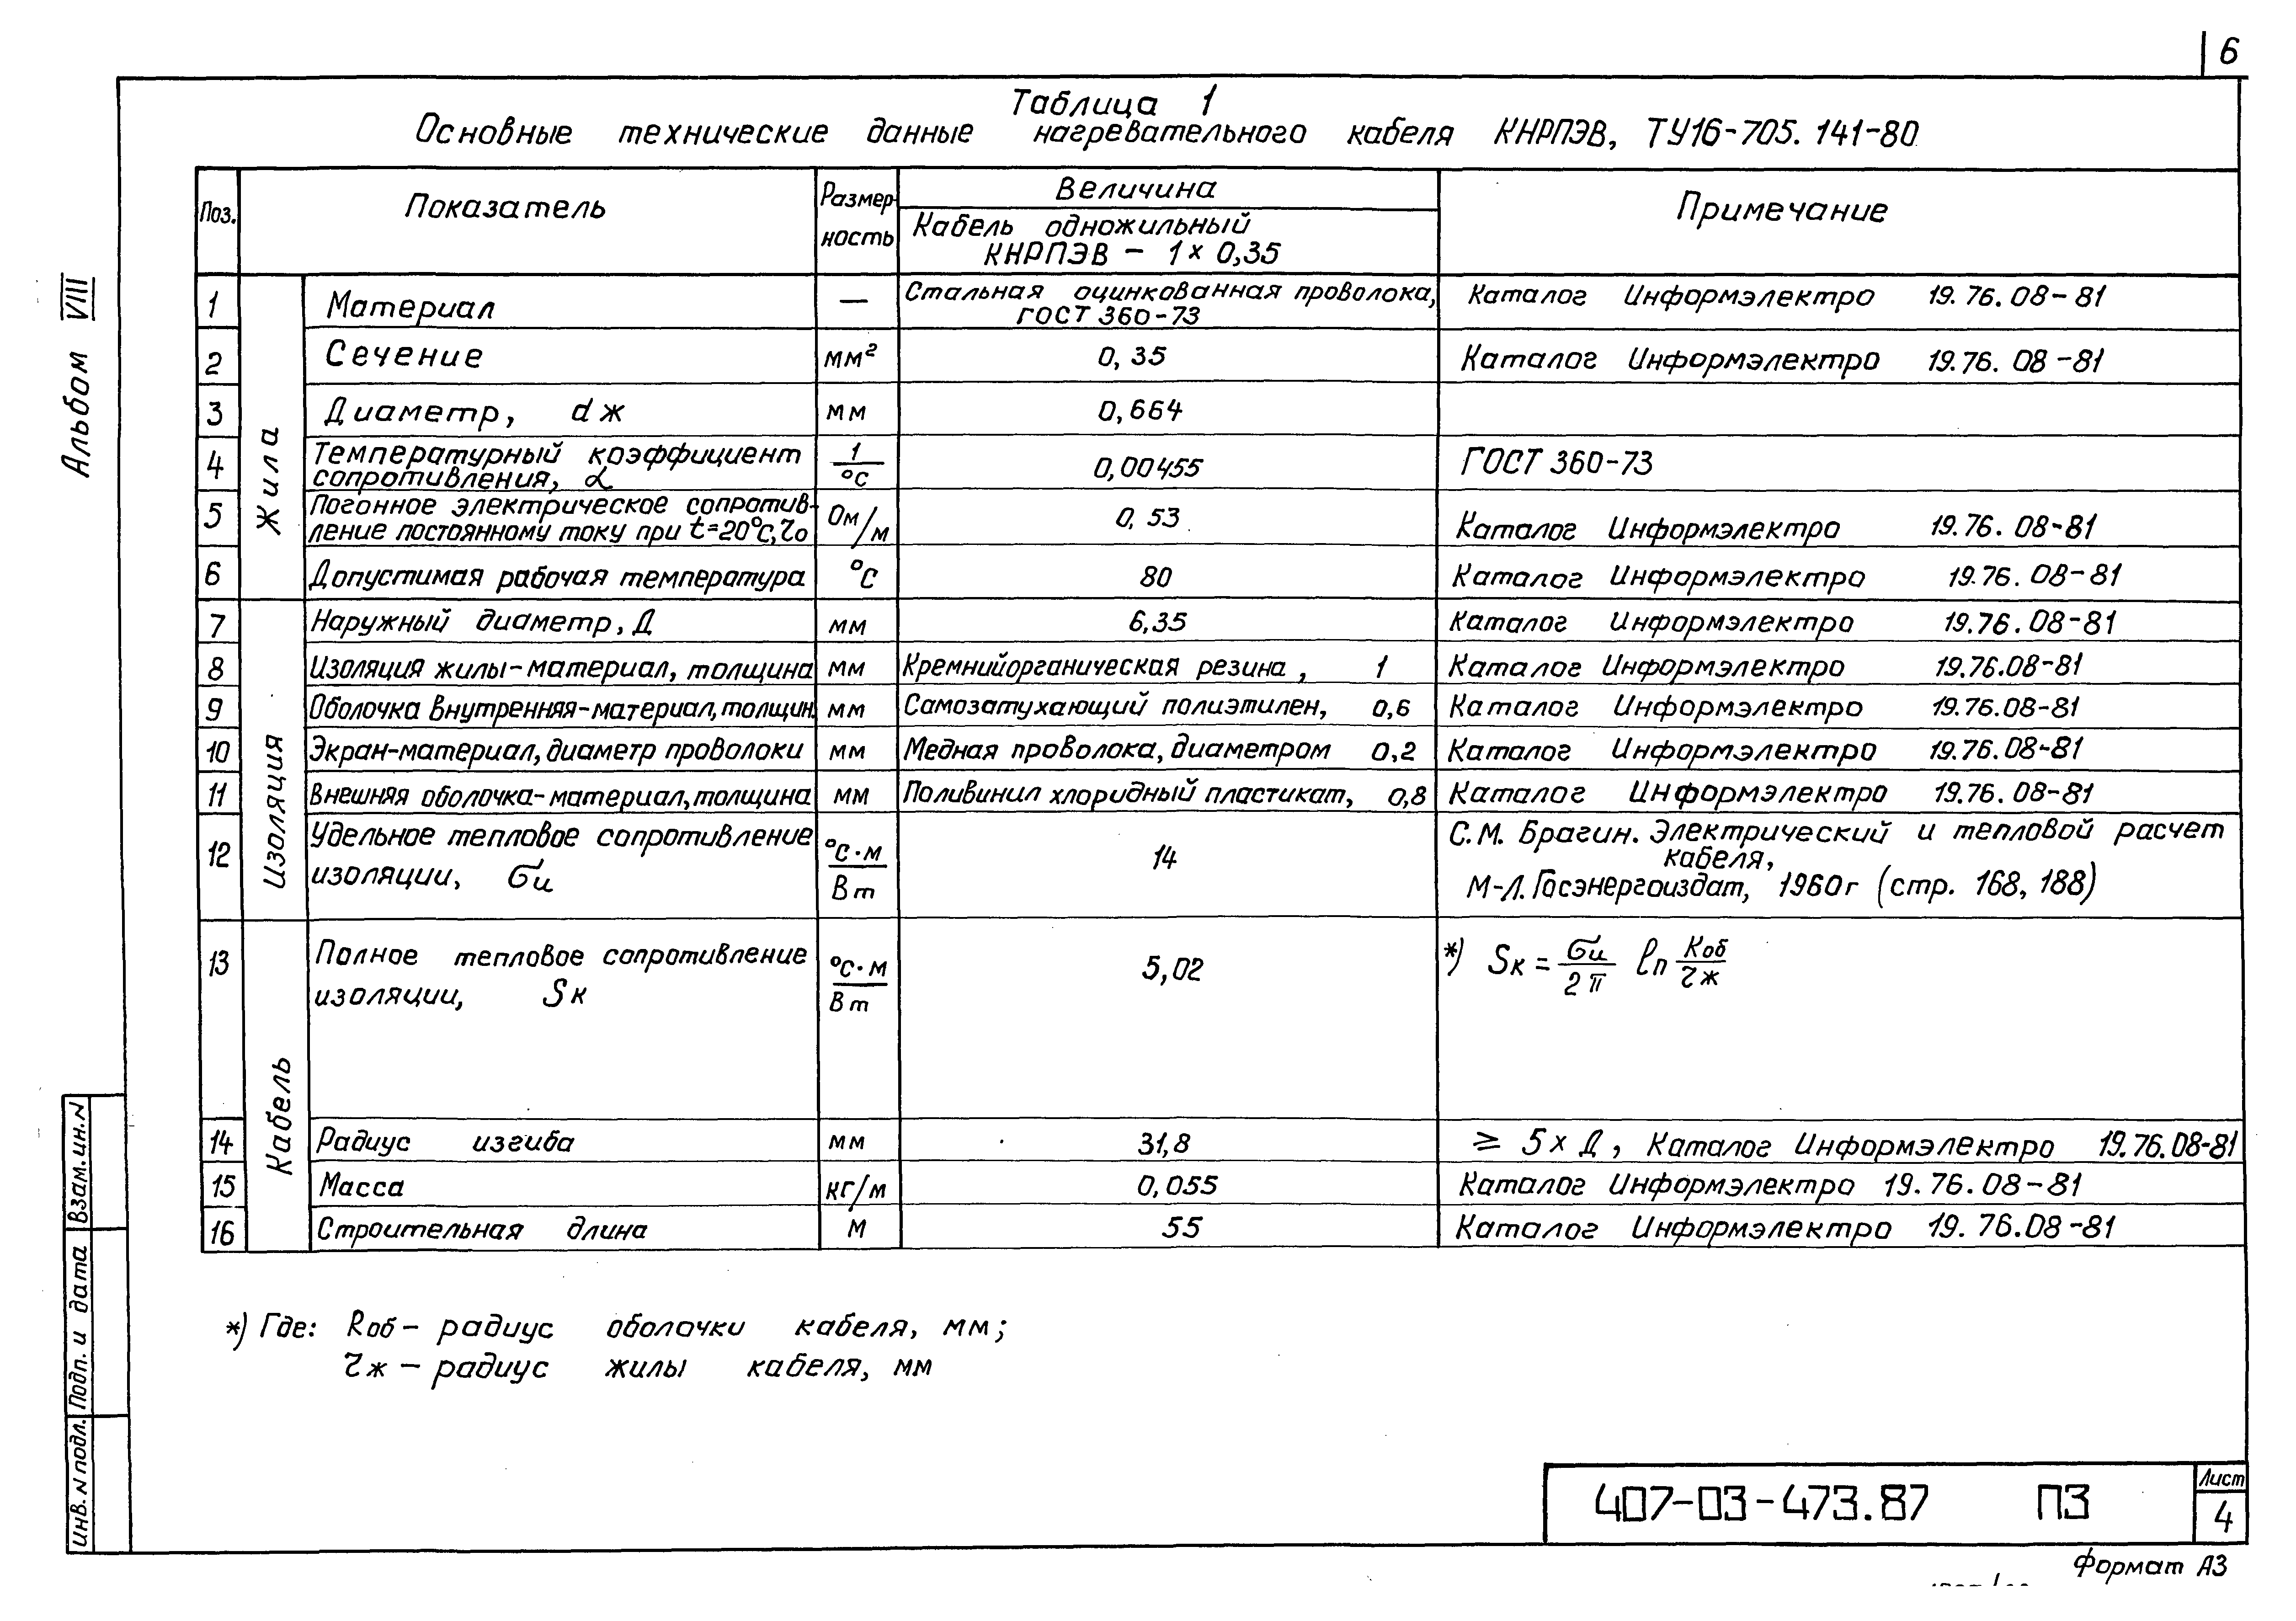 6
Таблица 1
Основные технические данные нагревательного кабеля КНРПЭВ, ТУ16-705.141-80
Поз.
Показатель
Размер-
ность
Величина
Кабель одножильный
КНРПЭВ - 1 × 0,35
Примечание
Жила
1 Материал — Стальная оцинкованная проволока, Каталог Информэлектро 19.76.08-81
ГОСТ 360-73
2 Сечение мм² 0,35 Каталог Информэлектро 19.76.08-81
3 Диаметр, dж мм 0,664
4 Температурный коэффициент 1/°С 0,00455 ГОСТ 360-73
сопротивления, α
5 Погонное электрическое сопротив- Ом/м 0,53 Каталог Информэлектро 19.76.08-81
ление постоянному току при t=20°С, τо
6 Допустимая рабочая температура °С 80 Каталог Информэлектро 19.76.08-81
Изоляция
7 Наружный диаметр, Д мм 6,35 Каталог Информэлектро 19.76.08-81
8 Изоляция жилы-материал, толщина мм Кремнийорганическая резина, 1 Каталог Информэлектро 19.76.08-81
9 Оболочка внутренняя-материал, толщин. мм Самозатухающий полиэтилен, 0,6 Каталог Информэлектро 19.76.08-81
10 Экран-материал, диаметр проволоки мм Медная проволока, диаметром 0,2 Каталог Информэлектро 19.76.08-81
11 Внешняя оболочка-материал, толщина мм Поливинил хлоридный пластикат, 0,8 Каталог Информэлектро 19.76.08-81
12 Удельное тепловое сопротивление °С·м/Вт 14 С.М. Брагин. Электрический и тепловой расчет
изоляции, σи
кабеля,
М-Л. Госэнергоиздат, 1960г (стр. 168, 188)
Кабель
13 Полное тепловое сопротивление °С·м/Вт 5,02 *) Sк = σи/2π ln Rоб/τж
изоляции, Sк
14 Радиус изгиба мм 31,8 ≥ 5 × Д, Каталог Информэлектро 19.76.08-81
15 Масса кг/м 0,055 Каталог Информэлектро 19.76.08-81
16 Строительная длина м 55 Каталог Информэлектро 19.76.08-81
*) Где: Rоб - радиус оболочки кабеля, мм;
τж - радиус жилы кабеля, мм
Альбом VIII
Взам. ин. N
Подп. и дата
Инв. N подл.
407-03-473.87 ПЗ
Лист
4
Формат А3